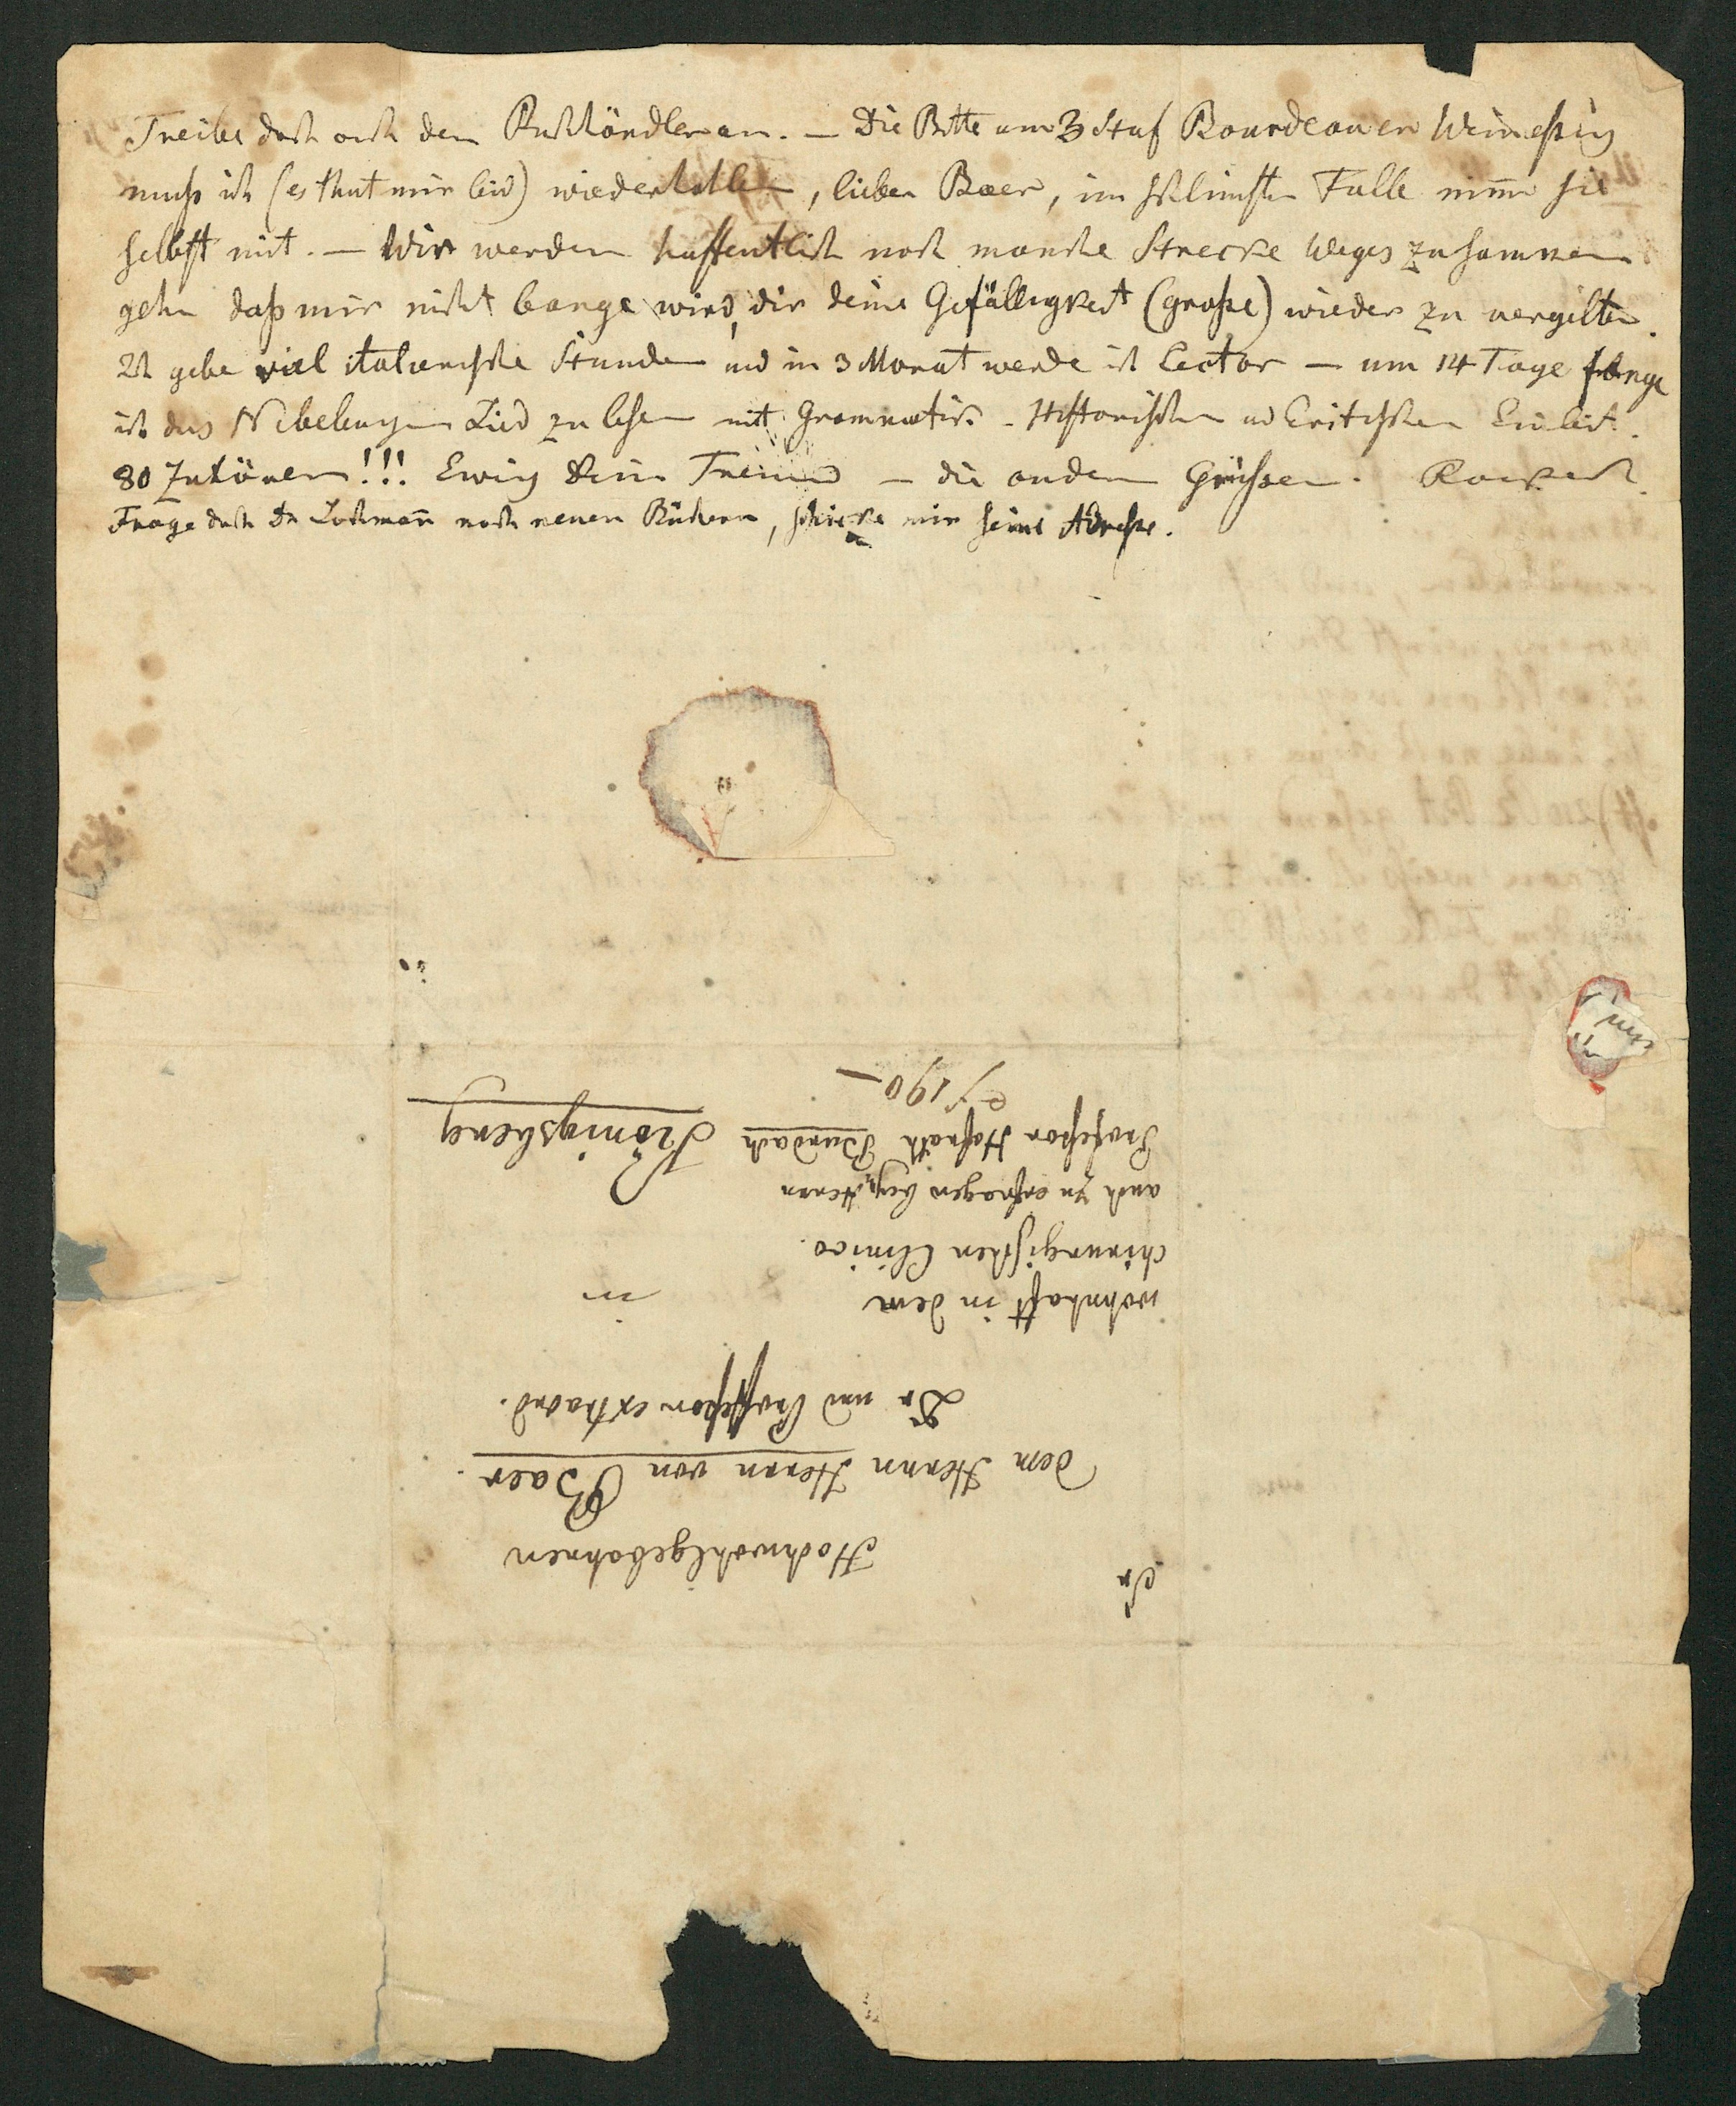 Treibe doch auch den Buchhändler an. — Die Bitte um 3 Stuf Bourdeauer Weinessig
muß ich (es thut mir leid) wiederhohlen, lieber Baer, im schlimsten Falle nim̄ sie
selbst mit. — Wir werden hoffentlich noch manche Strecke Weges zusammen
gehn daß mir nicht bange wird, dir deine Gefälligkeit (große) wieder zu vergelten.
Ich gebe viel italienische Stunden und in 3 Monat werde ich Lector — um 14 Tage fange
ich das Nibelungen Lied zu lesen mit Grammatik. Historischen und Critischen Einleit.
80 Zuhörer!!! Ewig Dein Freund — die andern Grüssen.
Frage doch Dr Lachman̄ nach neuen Büchern, schicke mir seine Adresse.
Sr
Hochwohlgebohren
dem Herrn Herrn von Baer.
Dr und Professor extraord.
wohnhaft in dem
in
chirurgischen Clinico.
auch zu erfragen bey Herrn
Professor Hofrath Burdach
Königsberg
190